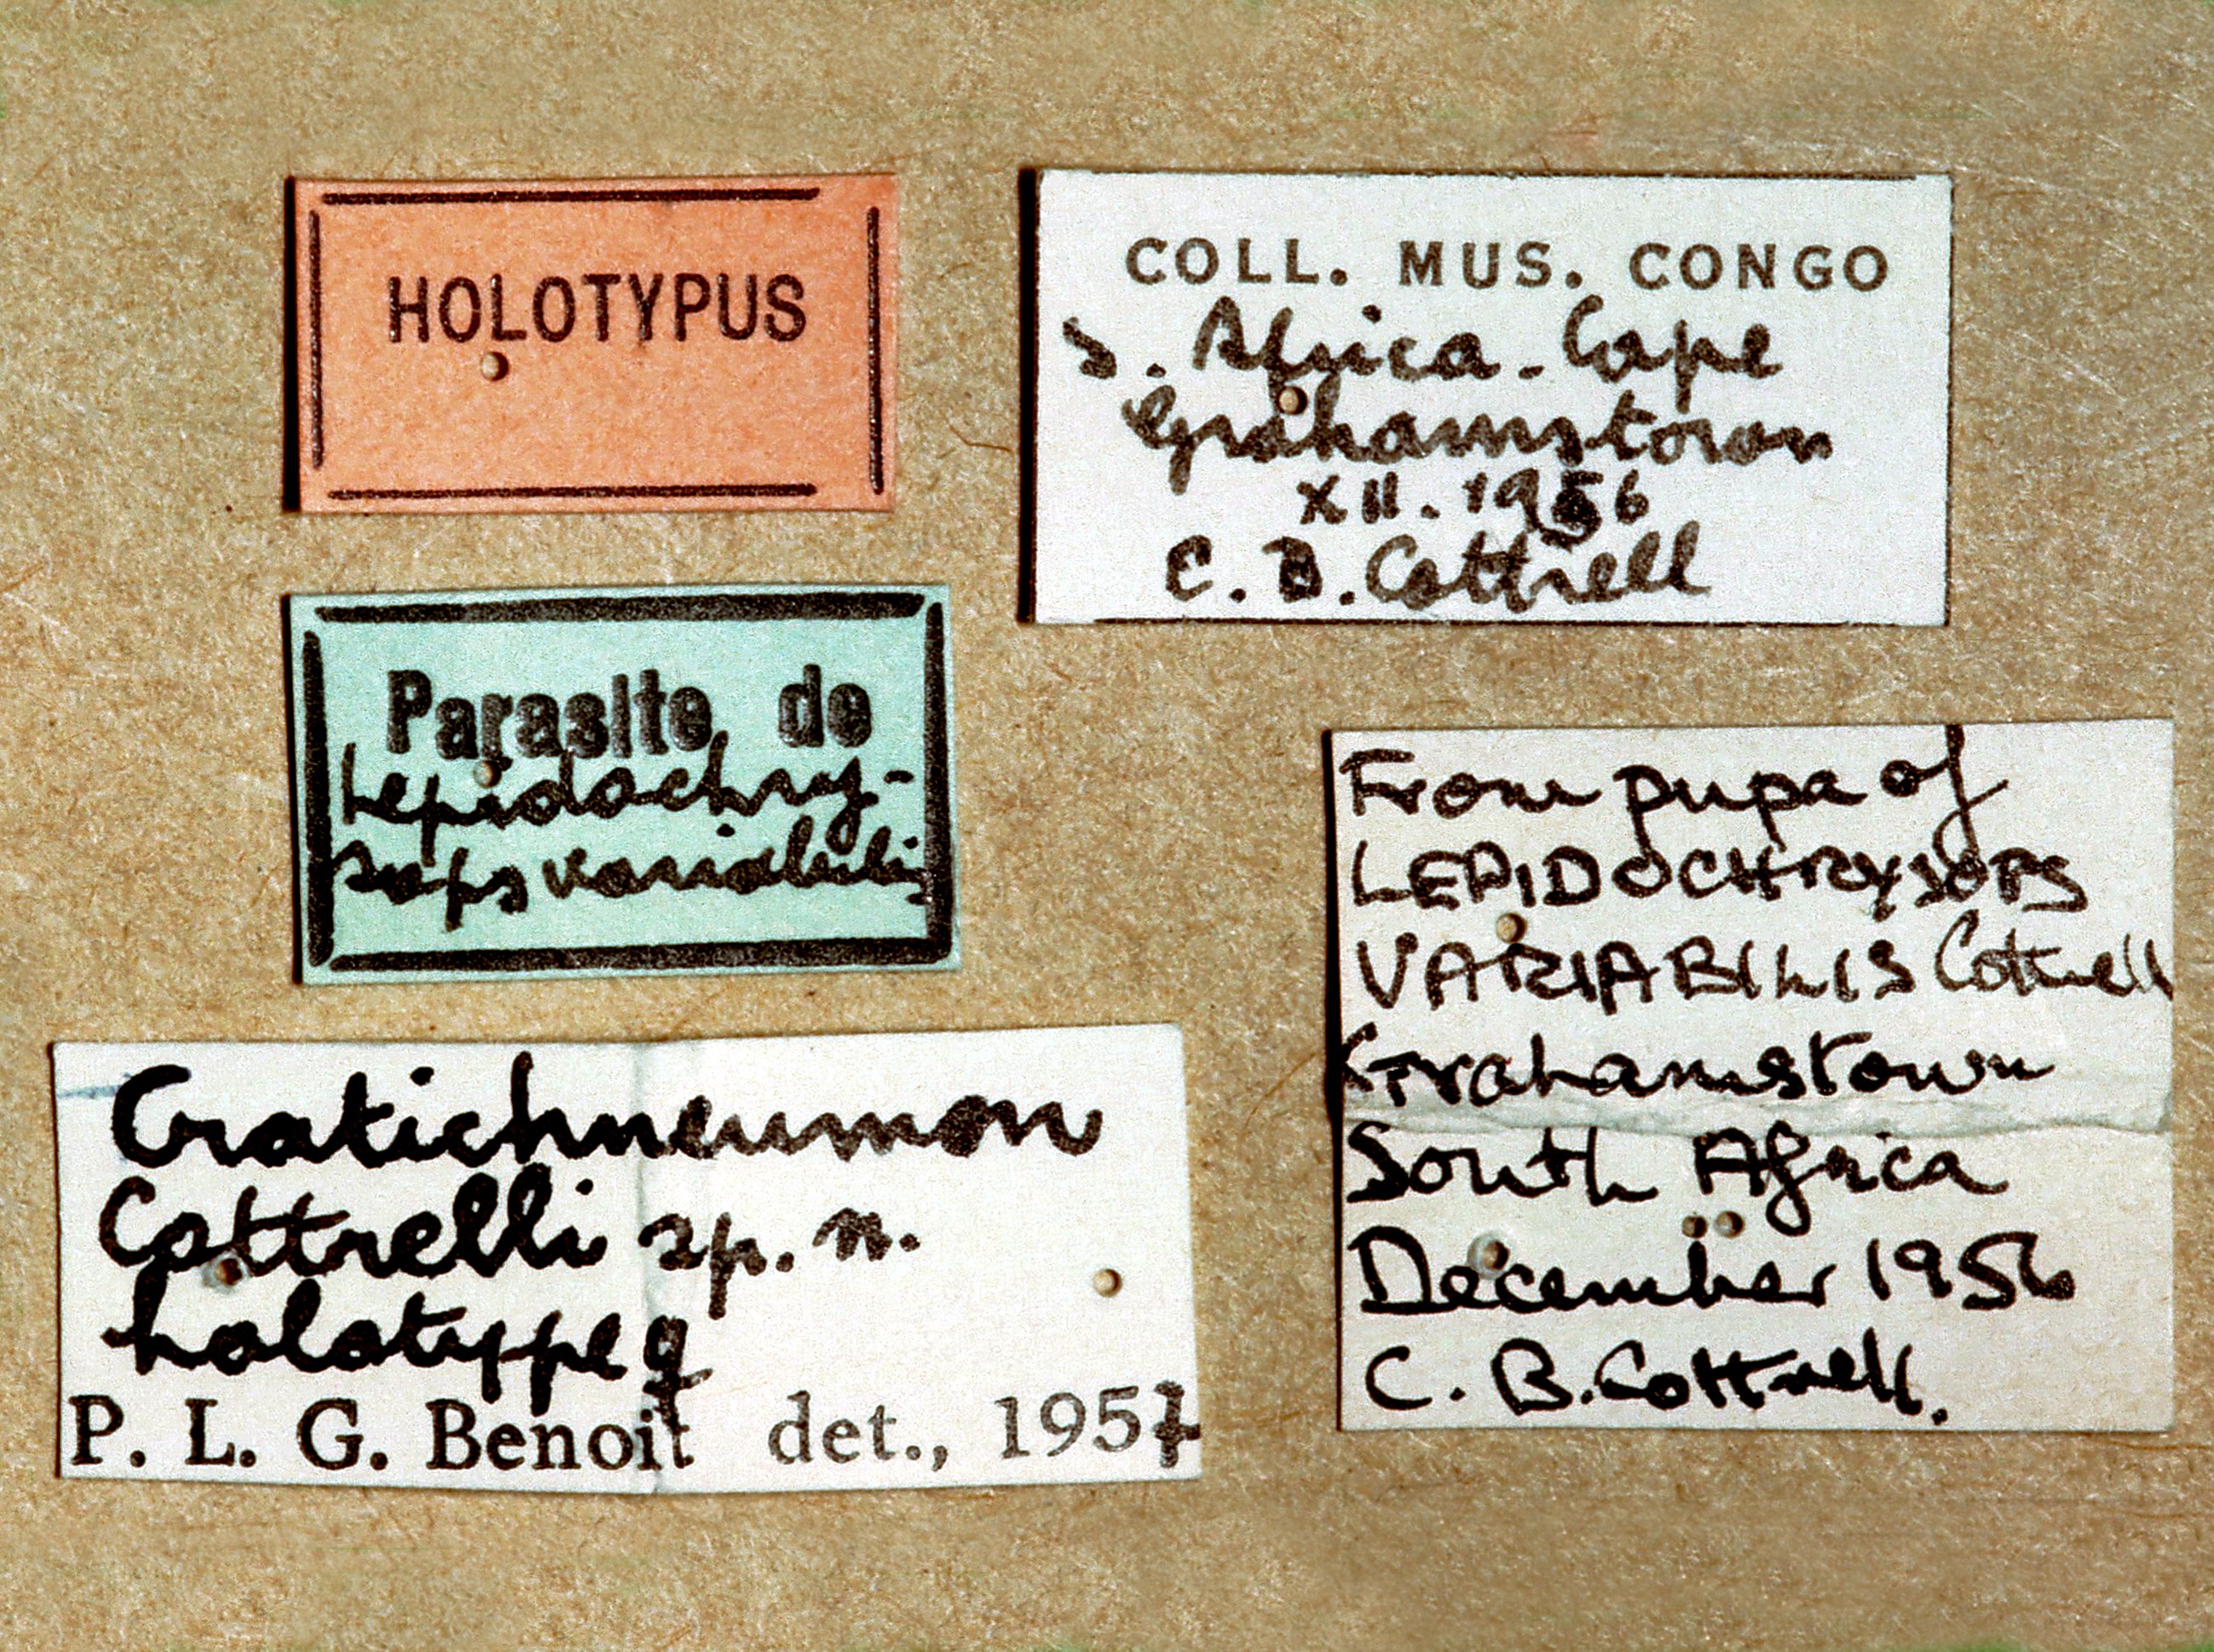 HOLOTYPUS
COLL. MUS. CONGO
S. Africa. Cape
Grahamstown
XII. 1956
C. B. Cottrell
Parasite de
Lepidochry-
sops variabilis
From pupa of
LEPIDOCHRYSOPS
VARIABILIS Cottrell
Grahamstown
South Africa
December 1956
C. B. Cottrell.
Cratichneumon
Cottrelli sp. n.
holotype ♀
P. L. G. Benoit det., 1957